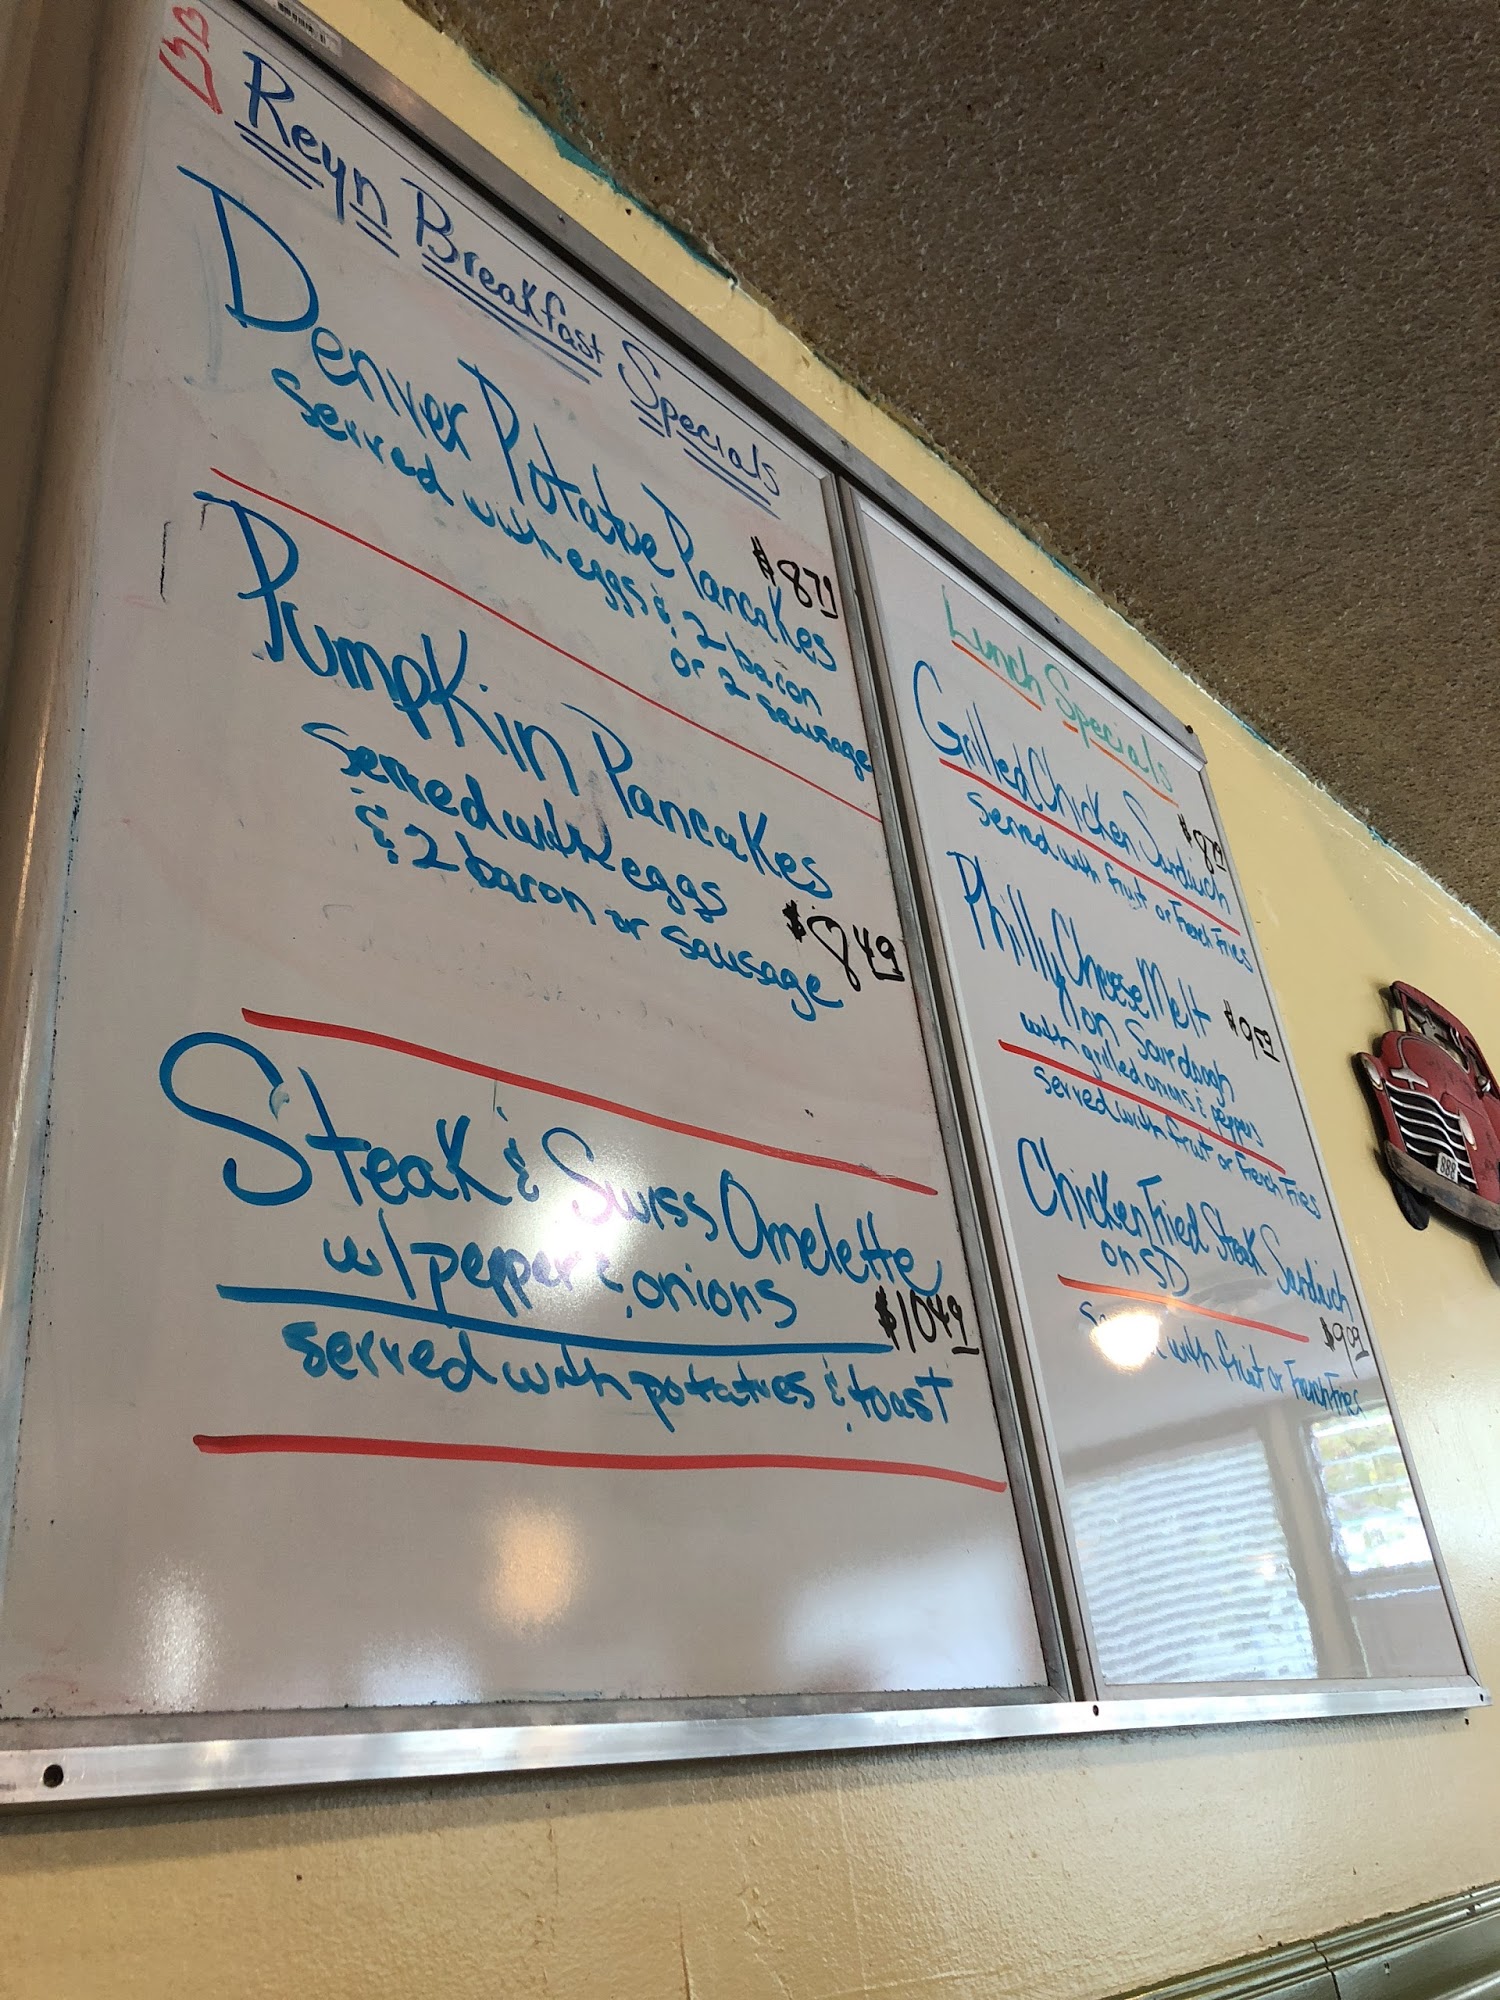 Reyn Breakfast Specials
Denver Potatoe Pancakes
$8 79
Served with eggs & 2 bacon
or 2 sausage
Pumpkin Pancakes
Served with eggs
& 2 bacon or sausage
$8 49
Steak & Swiss Omelette
w/ pepper & onions
$10 49
served with potatoes & toast
Lunch Specials
Grilled Chicken Sandwich
$8 79
Served with fruit or French Fries
Philly Cheese Melt
on Sourdough
$9 59
with grilled onions & peppers
served with fruit or French Fries
Chicken Fried Steak Sandwich
on SD
$9 09
with fruit or French Fries
888